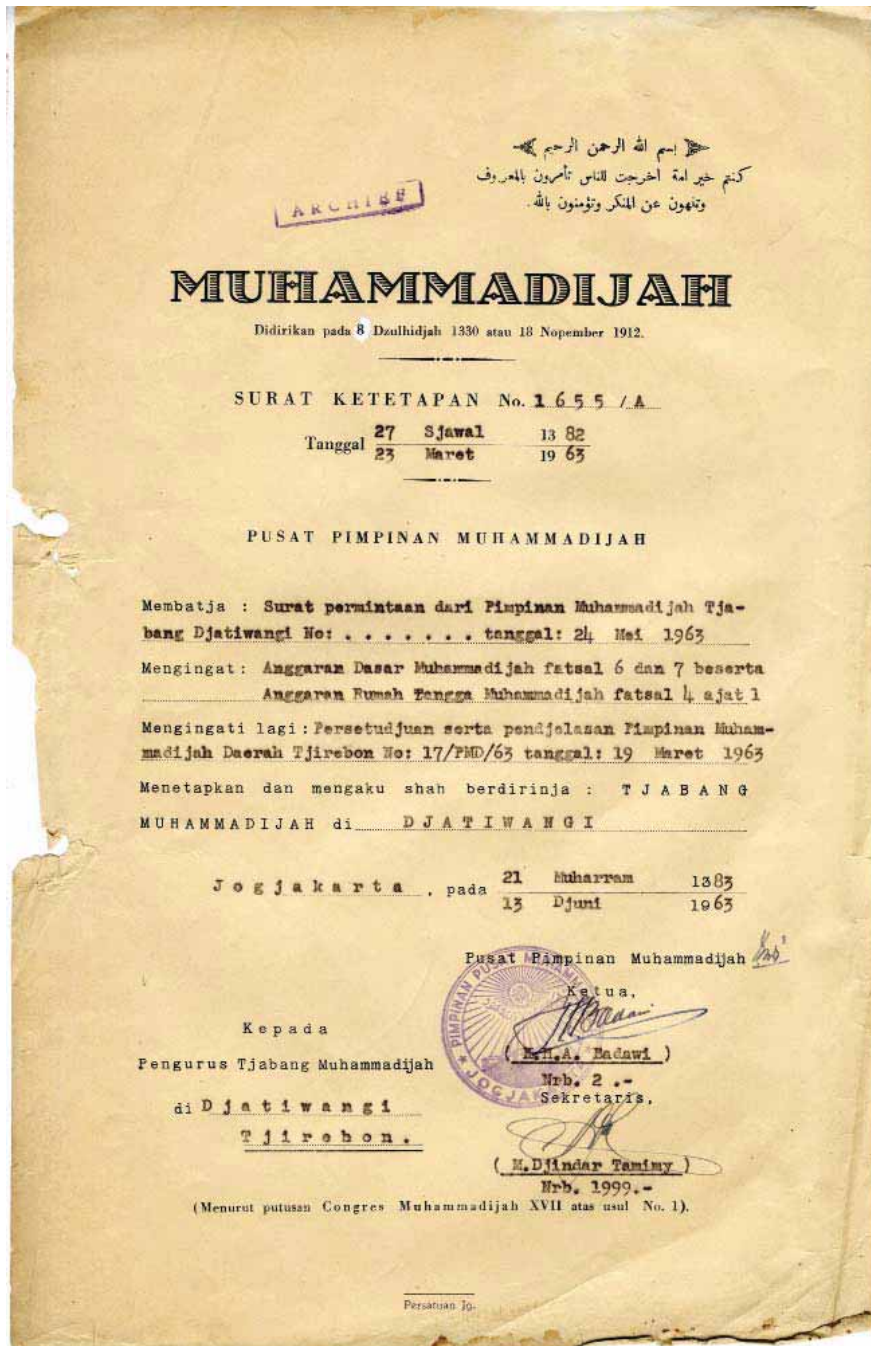 بسم الله الرحمن الرحيم
كنتم خير امة اخرجت للناس تأمرون بالمعروف
وتنهون عن المنكر وتؤمنون بالله.
ARCHIEF
MUHAMMADIJAH
Didirikan pada 8 Dzulhidjah 1330 atau 18 Nopember 1912.
SURAT KETETAPAN No. 1655/A
Tanggal 27 Sjawal 1382
23 Maret 1963
PUSAT PIMPINAN MUHAMMADIJAH
Membatja : Surat permintaan dari Pimpinan Muhammadijah Tja-
bang Djatiwangi No: . . . . . . . tanggal: 24 Mei 1963
Mengingat: Anggaran Dasar Muhammadijah fatsal 6 dan 7 beserta
Anggaran Rumah Tangga Muhammadijah fatsal 4 ajat 1
Mengingati lagi: Persetudjuan serta pendjelasan Pimpinan Muham-
madijah Daerah Tjirebon No: 17/PMD/63 tanggal: 19 Maret 1963
Menetapkan dan mengaku shah berdirinja : TJABANG
MUHAMMADIJAH di DJATIWANGI
Jogjakarta, pada 21 Muharram 1383
13 Djuni 1963
Pusat Pimpinan Muhammadijah
Ketua,
PIMPINAN PUSAT
JOGJAK
Kepada
Pengurus Tjabang Muhammadijah
di Djatiwangi
Tjirebon.
( K.H.A. Badawi )
Nrb. 2 .-
Sekretaris,
( M.Djindar Tamimy )
Nrb. 1999.-
(Menurut putusan Congres Muhammadijah XVII atas usul No. 1).
Persatuan Jg.